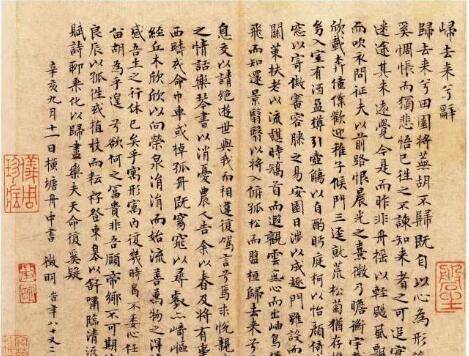 歸去來兮辭
歸去來兮田園將蕪胡不歸既自以心為形役
奚惆悵而獨悲悟已往之不諫知來者之可追
迷途其未遠覺今是而昨非舟搖以輕颺風飄
而吹衣問征夫以前路恨晨光之熹微乃瞻衡宇
欣載奔僮僕歡迎稚子候門三逕就荒松菊猶存
幼入室有酒盈樽引壺觴以自酌眄庭柯以怡顏
窓以寄傲審容膝之易安園日涉以成趣門雖設而
關策扶老以流憩時矯首而遐觀雲無心而出岫鳥
飛而知還景翳翳以將入撫孤松而盤桓歸去來兮
息交以請絕遊世與我而相違復駕言兮焉求悅親
之情話樂琴書以消憂農人告余以春及將有事
西疇或命巾車或棹孤舟既窈窕以尋壑亦崎嶇
經丘木欣欣以向榮泉涓涓而始流善萬物之得
感吾生之行休已矣乎寓形宇內復幾時曷不委心任
留胡為乎遑遑兮欲何之富貴非吾願帝鄉不可期
良辰以孤往或植杖而耘耔登東皋以舒嘯臨清流
賦詩聊乘化以歸盡樂夫天命復奚疑
辛亥九月十一日橫塘舟中書 徵明 時年八十又二